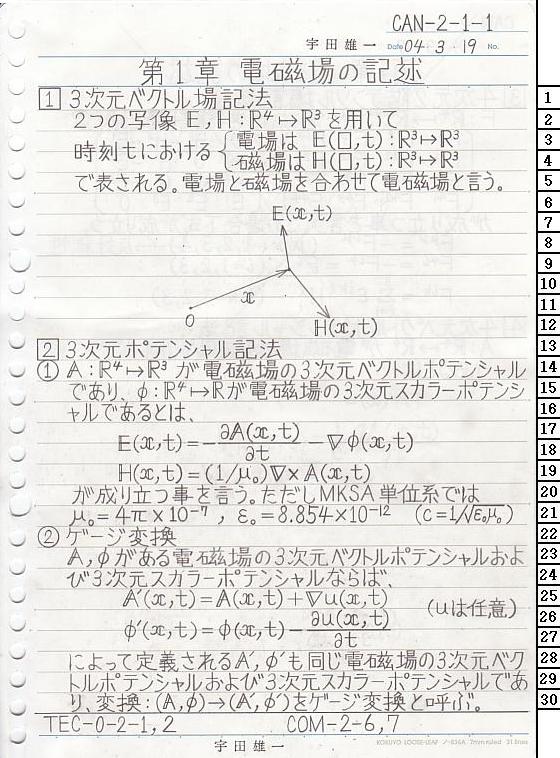 CAN-2-1-1
宇田雄一 Date 04・3・19 No.
第1章 電磁場の記述
1 3次元ベクトル場記法
2つの写像 E, H : R⁴↦R³ を用いて
時刻tにおける { 電場は E(□,t) : R³↦R³
磁場は H(□,t) : R³↦R³
で表される。電場と磁場を合わせて電磁場と言う。
E(x,t)
x
O
H(x,t)
2 3次元ポテンシャル記法
① A : R⁴↦R³ が電磁場の3次元ベクトルポテンシャル
であり、φ : R⁴↦R が電磁場の3次元スカラーポテンシ
ャルであるとは、
E(x,t) = -∂A(x,t)/∂t - ∇φ(x,t)
H(x,t) = (1/μ₀)∇×A(x,t)
が成り立つ事を言う。ただしMKSA単位系では
μ₀=4π×10⁻⁷, ε₀=8.854×10⁻¹² (c=1/√ε₀μ₀)
② ゲージ変換
A, φがある電磁場の3次元ベクトルポテンシャルおよ
び3次元スカラーポテンシャルならば、
A′(x,t)=A(x,t)+∇u(x,t)
φ′(x,t)=φ(x,t)-∂u(x,t)/∂t (uは任意)
によって定義されるA′, φ′も同じ電磁場の3次元ベク
トルポテンシャルおよび3次元スカラーポテンシャルであ
り、変換:(A,φ)→(A′,φ′)をゲージ変換と呼ぶ。
TEC-0-2-1,2 COM-2-6,7
宇田雄一 KOKUYO LOOSE-LEAF ノ-836A 7mm ruled 31 lines
1
2
3
4
5
6
7
8
9
10
11
12
13
14
15
16
17
18
19
20
21
22
23
24
25
26
27
28
29
30